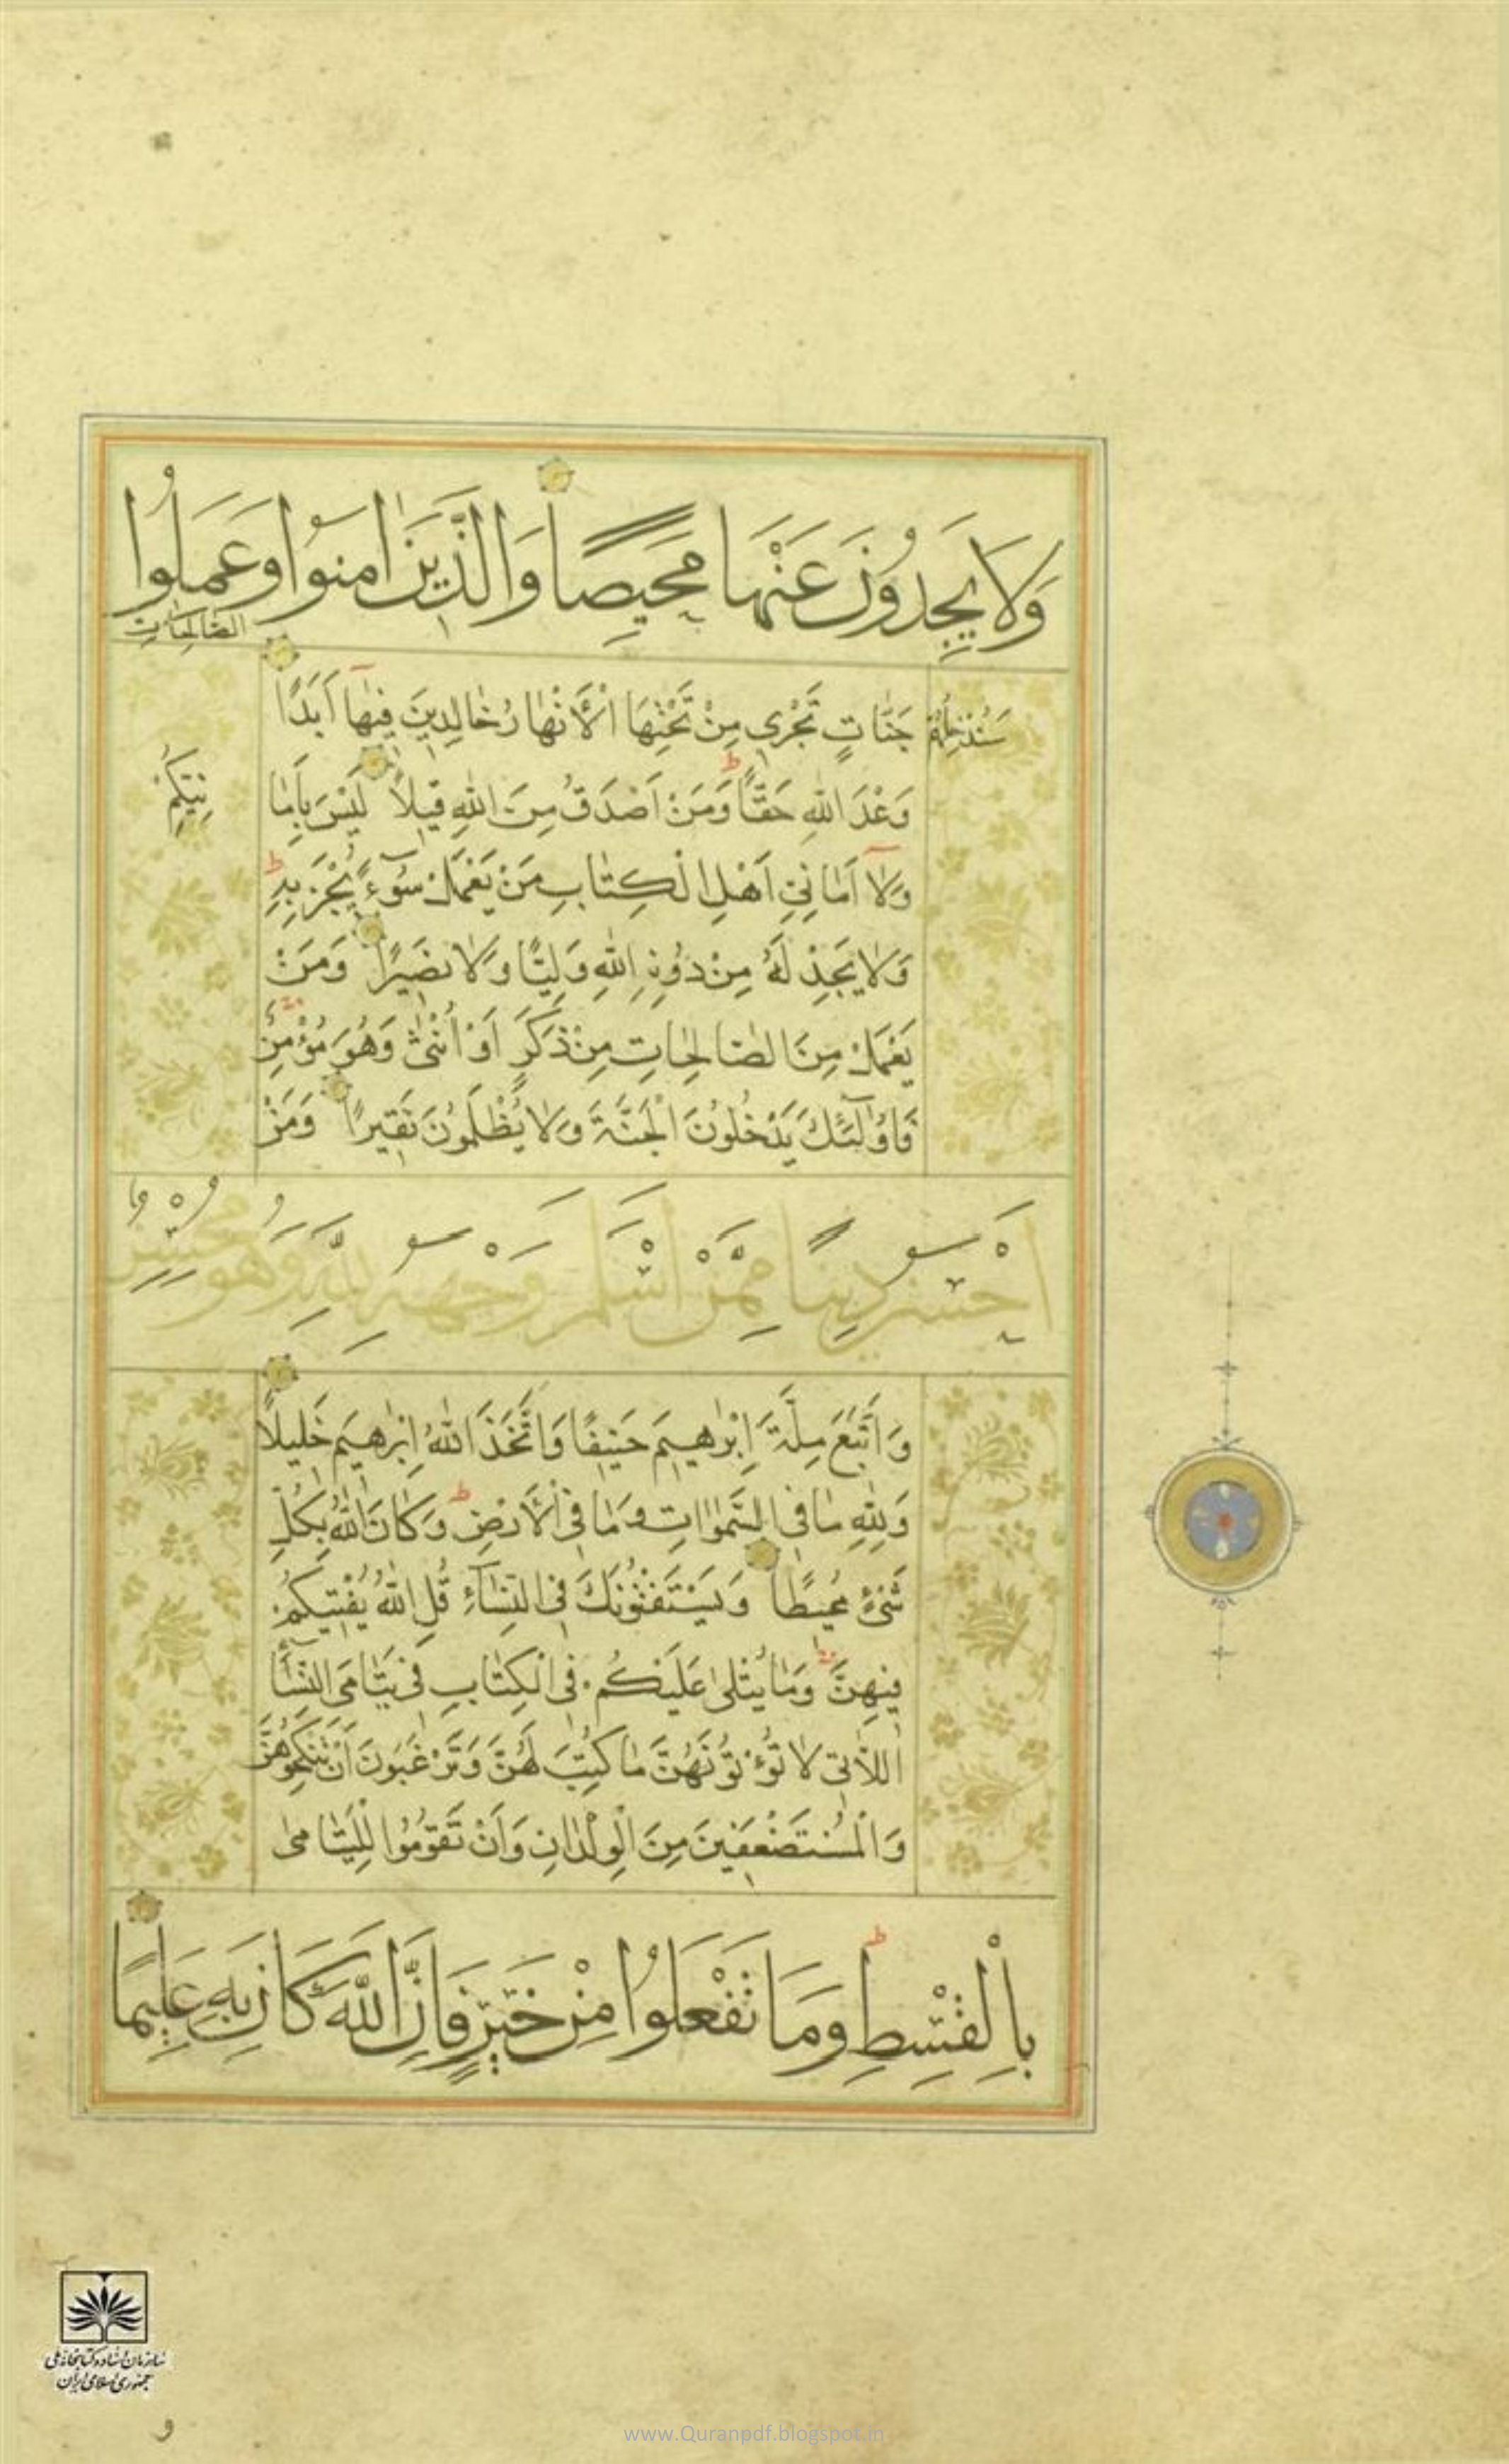 وَلَا يَجِدُونَ عَنْهَا مَحِيصًا وَالَّذِينَ اٰمَنُوا وَعَمِلُوا
الصَّالِحَاتِ
سَنُدْخِلُهُمْ جَنَّاتٍ تَجْرِي مِنْ تَحْتِهَا الْأَنْهَارُ خَالِدِينَ فِيهَا أَبَدًا
وَعْدَ اللهِ حَقًّا وَمَنْ اَصْدَقُ مِنَ اللهِ قِيلًا لَيْسَ بِاَمَا
نِيِّكُمْ
وَلَا اَمَانِيِّ اَهْلِ الْكِتَابِ مَنْ يَعْمَلْ سُوٓءًا يُجْزَ بِهِ
وَلَا يَجِدْ لَهُ مِنْ دُونِ اللهِ وَلِيًّا وَلَا نَصِيرًا وَمَنْ
يَعْمَلْ مِنَ الصَّالِحَاتِ مِنْ ذَكَرٍ اَوْ اُنْثٰى وَهُوَ مُؤْمِنٌ
فَاُولٰٓئِكَ يَدْخُلُونَ الْجَنَّةَ وَلَا يُظْلَمُونَ نَقِيرًا وَمَنْ
اَحْسَنُ دِينًا مِمَّنْ اَسْلَمَ وَجْهَهُ لِلّٰهِ وَهُوَ مُحْسِنٌ
وَاتَّبَعَ مِلَّةَ اِبْرٰهِيمَ حَنِيفًا وَاتَّخَذَ اللهُ اِبْرٰهِيمَ خَلِيلًا
وَلِلّٰهِ مَا فِي السَّمٰوَاتِ وَمَا فِي الْاَرْضِ وَكَانَ اللهُ بِكُلِّ
شَيْءٍ مُحِيطًا وَيَسْتَفْتُونَكَ فِي النِّسَآءِ قُلِ اللهُ يُفْتِيكُمْ
فِيهِنَّ وَمَا يُتْلٰى عَلَيْكُمْ فِي الْكِتَابِ فِي يَتَامَى النِّسَآءِ
اللَّاتِي لَا تُؤْتُونَهُنَّ مَا كُتِبَ لَهُنَّ وَتَرْغَبُونَ اَنْ تَنْكِحُوهُنَّ
وَالْمُسْتَضْعَفِينَ مِنَ الْوِلْدَانِ وَاَنْ تَقُومُوا لِلْيَتَامٰى
بِالْقِسْطِ وَمَا تَفْعَلُوا مِنْ خَيْرٍ فَاِنَّ اللّٰهَ كَانَ بِهِ عَلِيمًا
سازمان اسناد و کتابخانه ملی
جمهوری اسلامی ایران
www.Quranpdf.blogspot.in